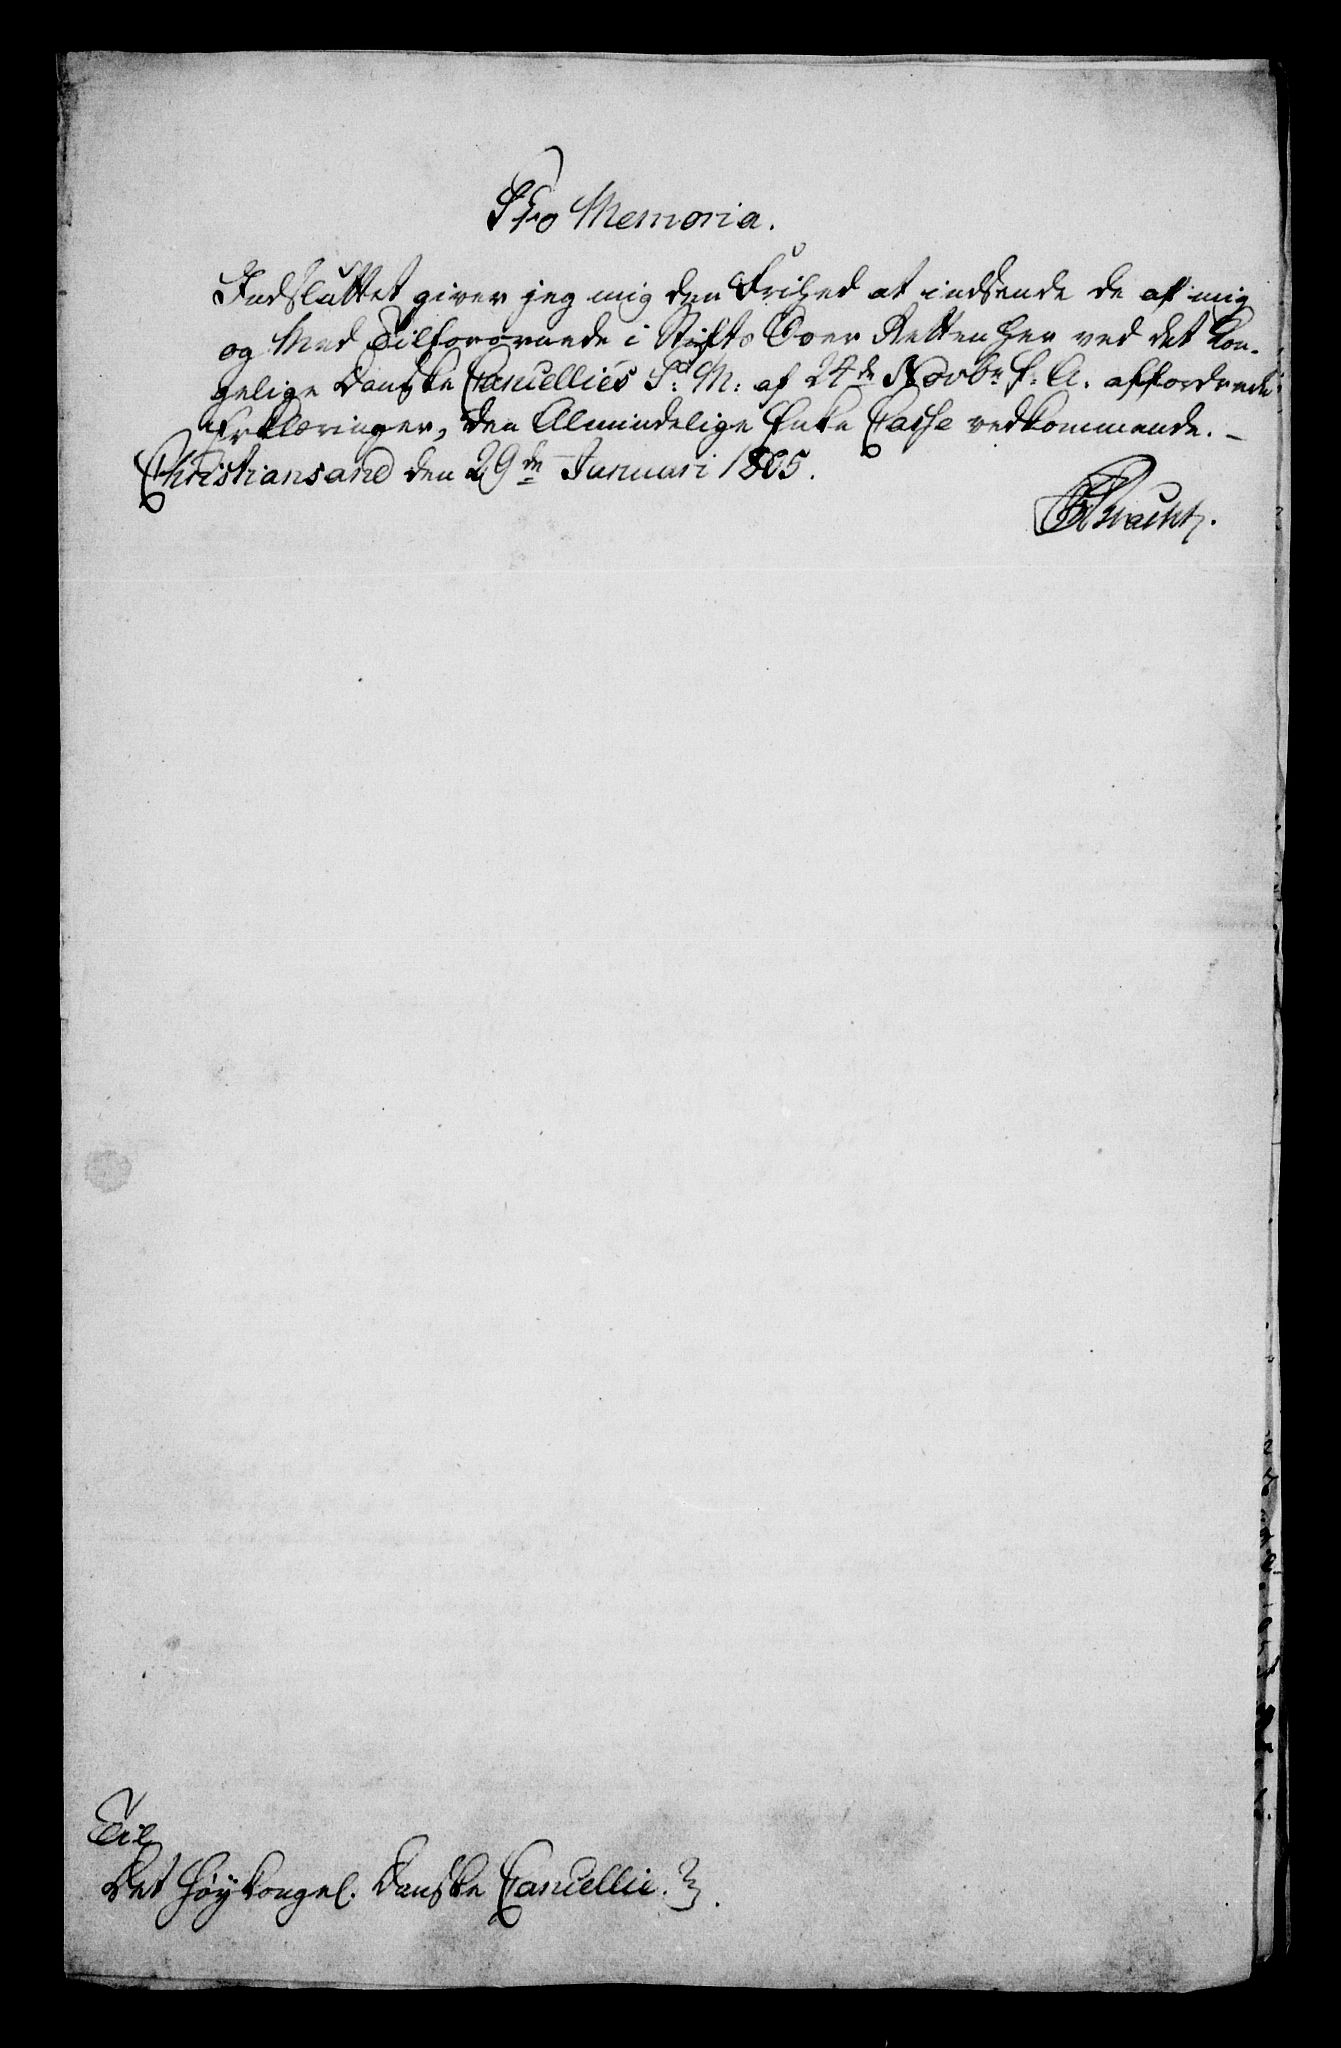 Pro Memoria.
Indsluttet giver jeg mig den Frihed at indsende de af mig
og Med Tilforornede i Stifts Over Retten her ved det Kon-
gelige Danske Cancellies P: M: af 24de Novbr f: A. affordrede
Erklæringer, den Almindelige Enke Casse vedkommende. –
Christiansand den 29de Januari 1805.
Til
Det Høykongel. Danske Cancellie.